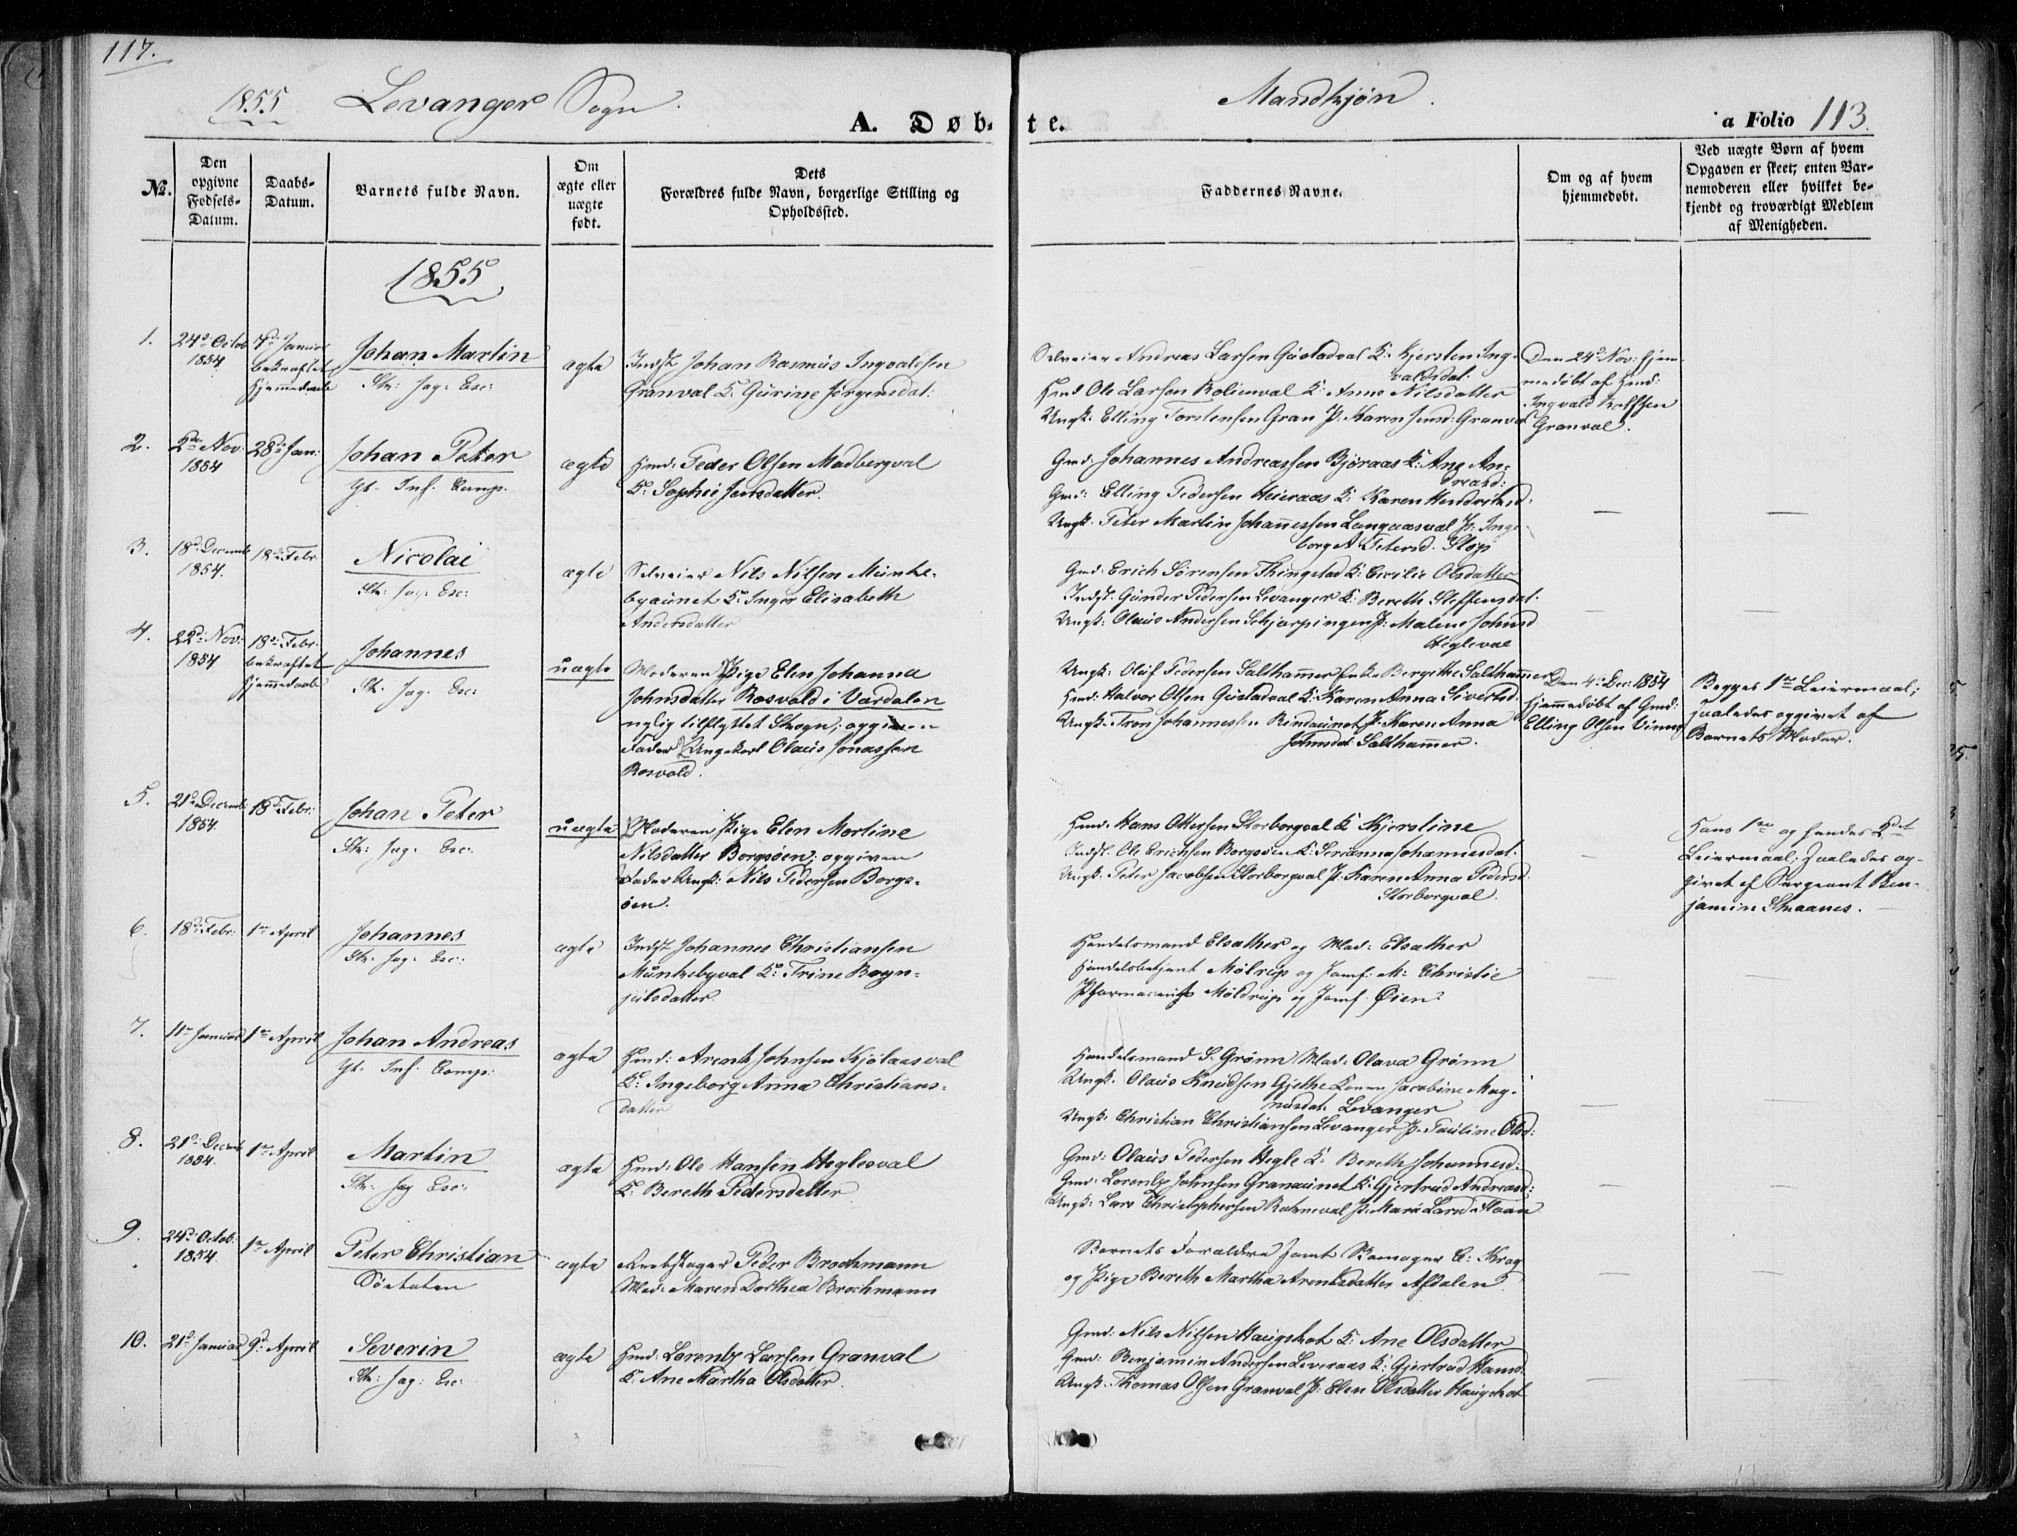 117.
1855 Levanger Sogn.
Mandkjøn.
A. Døbte.
a Folio 113.
No.
Den opgivne Fødsels-Datum.
Daabs-Datum.
Barnets fulde Navn.
Om ægte eller uægte født.
Dets Forældres fulde Navn, borgerlige Stilling og Opholdssted.
Faddernes Navne.
Om og af hvem hjemmedøbt.
Ved uægte Børn af hvem Opgaven er skeet, enten Barnemoderen eller hvilket bekjendt og troværdigt Medlem af Menigheden.
1855
1.
24d Octob
1854
Januar
bekræftet
Hjemmedaab
Johan Martin
Str: Jag: Esc:
ægte
Indst Johan Rasmus Ingvaldsen
Granval K: Gurine Jørgensdat:
Selveier Andreas Larsen Gustadval K: Kjersten Ing-
valdsdat.
Hmd Ole Larsen K: Anne Nilsdatter
Ungk: Elling Torstensen Gran P: Karen Granval
Den 24d Nov: hjem-
medøbt af Hmd:
Ingvald
Granval.
2.
2den Nov:
1854
28de Jan:
Johan Peter
Yt. Inf. Comp.
ægte
Hmd: Peder Olsen Madbergval
K: Sophie Jensdatter.
Gmd: Johannes Andreassen Bjøraas K: Ane An-
dreasd:
Gmd: Elling Pedersen Heieraas K: Karen Hendriksd:
Ungk. Peter Martin Johannessen Langaasval P: Inge-
borg A. Petersd.
3.
18d Decemb
1854.
18de Febr:
Nicolai
Str: Jag: Esc:
ægte
Selveier Nils Nilsen Munke-
byaunet K: Inger Elisabeth
Andersdatter
Gmd: Erich Sørensen Thingstad K: Cecilie Olsdatter
Indst: Gunder Pedersen Levanger K: Bereth Steffensdat.
Ungk: Olaus Andersen P: Malene Johnsd
Hegleval
4.
22d Nov:
1854
18de Febr.
bekræftet
Hjemmedaab
Johannes
Str: Jag: Esc:
uægte
Moderen Pige Elen Johanna
Johnsdatter Rosvold i Værdalen
nylig tilflyttet Skogn; opgiven
Fader Ungekarl Olaus Jonassen
Rosvold.
Ungk: Oluf Pedersen Salthammer Enke Bergithe Salthammer
Hmd: Halvor Olsen Gustadval K: Karen Anna Sivertsd:
Ungk: Tron Johannessen Rindaunet P: Karen Anna
Johnsdat: Salthammer.
Den 4. Dec: 1854
hjemmedøbt af Gmd:
Elling Olsen Vinne
Begges 1ste Leiermaal;
saaledes opgivet af
Barnets Moder.
5.
21d Decemb
1854.
18d Febr:
Johan Peter
Str: Jag: Esc:
uægte
Moderen Pige Elen Martine
Nilsdatter Borgsøen; opgiven
Fader Ungk: Nils Pedersen Borgs-
øen.
Hmd: Hans Ottersen Storborgval K: Kjerstine
Indst: Ole Erichsen Borgsøen K: Serianna Johannesdat.
Ungk: Peter Jacobsen Storborgval P: Karen Anna Pedersd.
Storborgval.
Hans 1ste og hendes 2det
Leiermaal; saaledes op-
givet af Sergeant Ben-
jamin Skaanes.
6.
18de Febr:
1ste April
Johannes
Str: Jag: Esc:
ægte
Indst Johannes Christiansen
Munkebyval K: Trine Bryn-
julsdatter
Handelsmand Elsæther og Mad: Elsæther
Handelsbetjent Møldrup og Jomf: M: Christie
Pharmaceut Møldrup og Jomf. Øien.
7.
11te Januar
1ste April
Johan Andreas
Yt. Inf. Comp:
ægte
Hmd: Arentz Johnsen Kjølaasval
K: Ingeborg Anna Christians-
datter
Handelsmand S. Grønn Mad: Olava Grønn
Ungk. Olaus Knudsen Gjethe Konen Jacobine Mag-
nusdat. Levanger
Ungk: Christian Christiansen Levanger P: Pauline Olsd:
8.
21d Decemb
1854.
1ste April
Martin
Str: Jag Esc:
ægte
Hmd: Ole Hansen Heglesval
K: Bereth Pedersdatter
Gmd: Olaus Pedersen Hegle K: Bereth Johannesd:
Gmd: Lorentz Johnsen Granaunet K: Gjertrud Andreasd:
Ungk: Lars Christophersen P: Marie Larsd: Moan
9.
24d Octob.
1854
1ste April
Peter Christian
Søetaten
ægte
Rebslager Peder Brochmann
Mad: Maren Dorthea Brochmann
Barnets Forældre samt C: Krog
og Pige Bereth Martha Arentsdatter Afdalen
10.
21d Januar
9d April
Severin
Str: Jag: Esc:
ægte
Hmd: Lorentz Larsen Granval
K: Ane Martha Olsdatter.
Gmd: Nils Nilsen Haugskot K: Ane Olsdatter
Gmd: Benjamin Andersen Leveraas K: Gjertrud Hansd:
Ungk: Thomas Olsen Granval P: Elen Olsdatter Haugskot